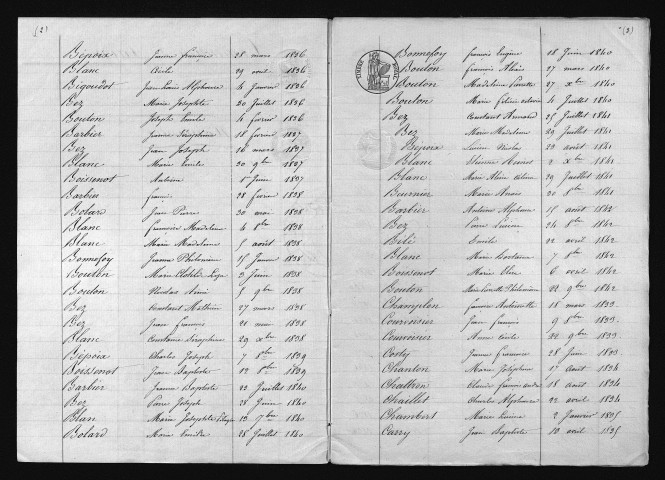 (2)
Bépoix Jeanne françoise 28 mars 1836
Blanc Cécile 29 avril 1836
Bigoudot Jean Louis Alphonse 4 janvier 1836
Bez Marie Josephte 20 Juillet 1836
Bouton Joseph Emile 4 fevrier 1836
Barbier Jeanne Séraphine 18 fevrier 1837
Bez Jean Joseph 16 mars 1837
Blanc Marie Emile 30 9bre 1837
Boissenot 1er Juin 1837
Barbier francois 28 fevrier 1838
Bolard Jean Pierre 30 mai 1838
Blanc francoise Madeleine 4 8bre 1838
Blanc Marie Madeleine 5 aout 1838
Bonnefoy Jeanne Philomène 15 Janvier 1838
Bouton Marie Clotilde 3 Juin 1838
Bouton Nicolas Aimé 5 9bre 1838
Bez Constant Mathieu 27 mars 1838
Bez Jean francois 21 mai 1838
Blanc Constance Séraphine 29 xbre 1838
Bépoix Charles Joseph 7 8bre 1839
Boissenot Jean Baptiste 12 8bre 1839
Barbier Jeanne Baptiste 22 Juillet 1840
Bez Pierre Joseph 28 Juin 1840
Blan Marie Josephte 13 7bre 1840
Bolard Marie Emilie 28 Juillet 1840
(3)
Bonnefoy francois Eugène 18 Juin 1840
Bouton francois Alexis 27 mars 1840
Bouton Madeleine Pierrette 27 xbre 1840
Bouton Marie 4 Juillet 1840
Bez Constant Armand 25 Juillet 1841
Bez Marie Madeleine 29 Juillet 1841
Bépoix Lucien Nicolas 22 aout 1841
Blanc Etienne 2 xbre 1841
Blanc Marie 29 Juillet 1841
Beurnier Marie Anaïs 20 8bre 1841
Barbier Antoine Alphonse 15 aout 1842
Bez Pierre Lucien 24 8bre 1842
Bilé Emile 22 avril 1842
Blanc Marie 7 8bre 1842
Boissenot Marie 6 avril 1842
Bouton Marie Philomène 22 9bre 1842
Champion Antoinette 18 mars 1833
Couronsier Jean francois 9 8bre 1833
Couronsier Anne Cécile 22 9bre 1833
Coty Jeanne francoise 28 Juin 1833
Chanton Marie Josephine 17 Aout 1834
Chattren Claude francois 18 aout 1834
Chaillet Charles Alphonse 22 avril 1834
Chambert Marie 2 Janvier 1835
Curry Jean Baptiste 10 avril 1835